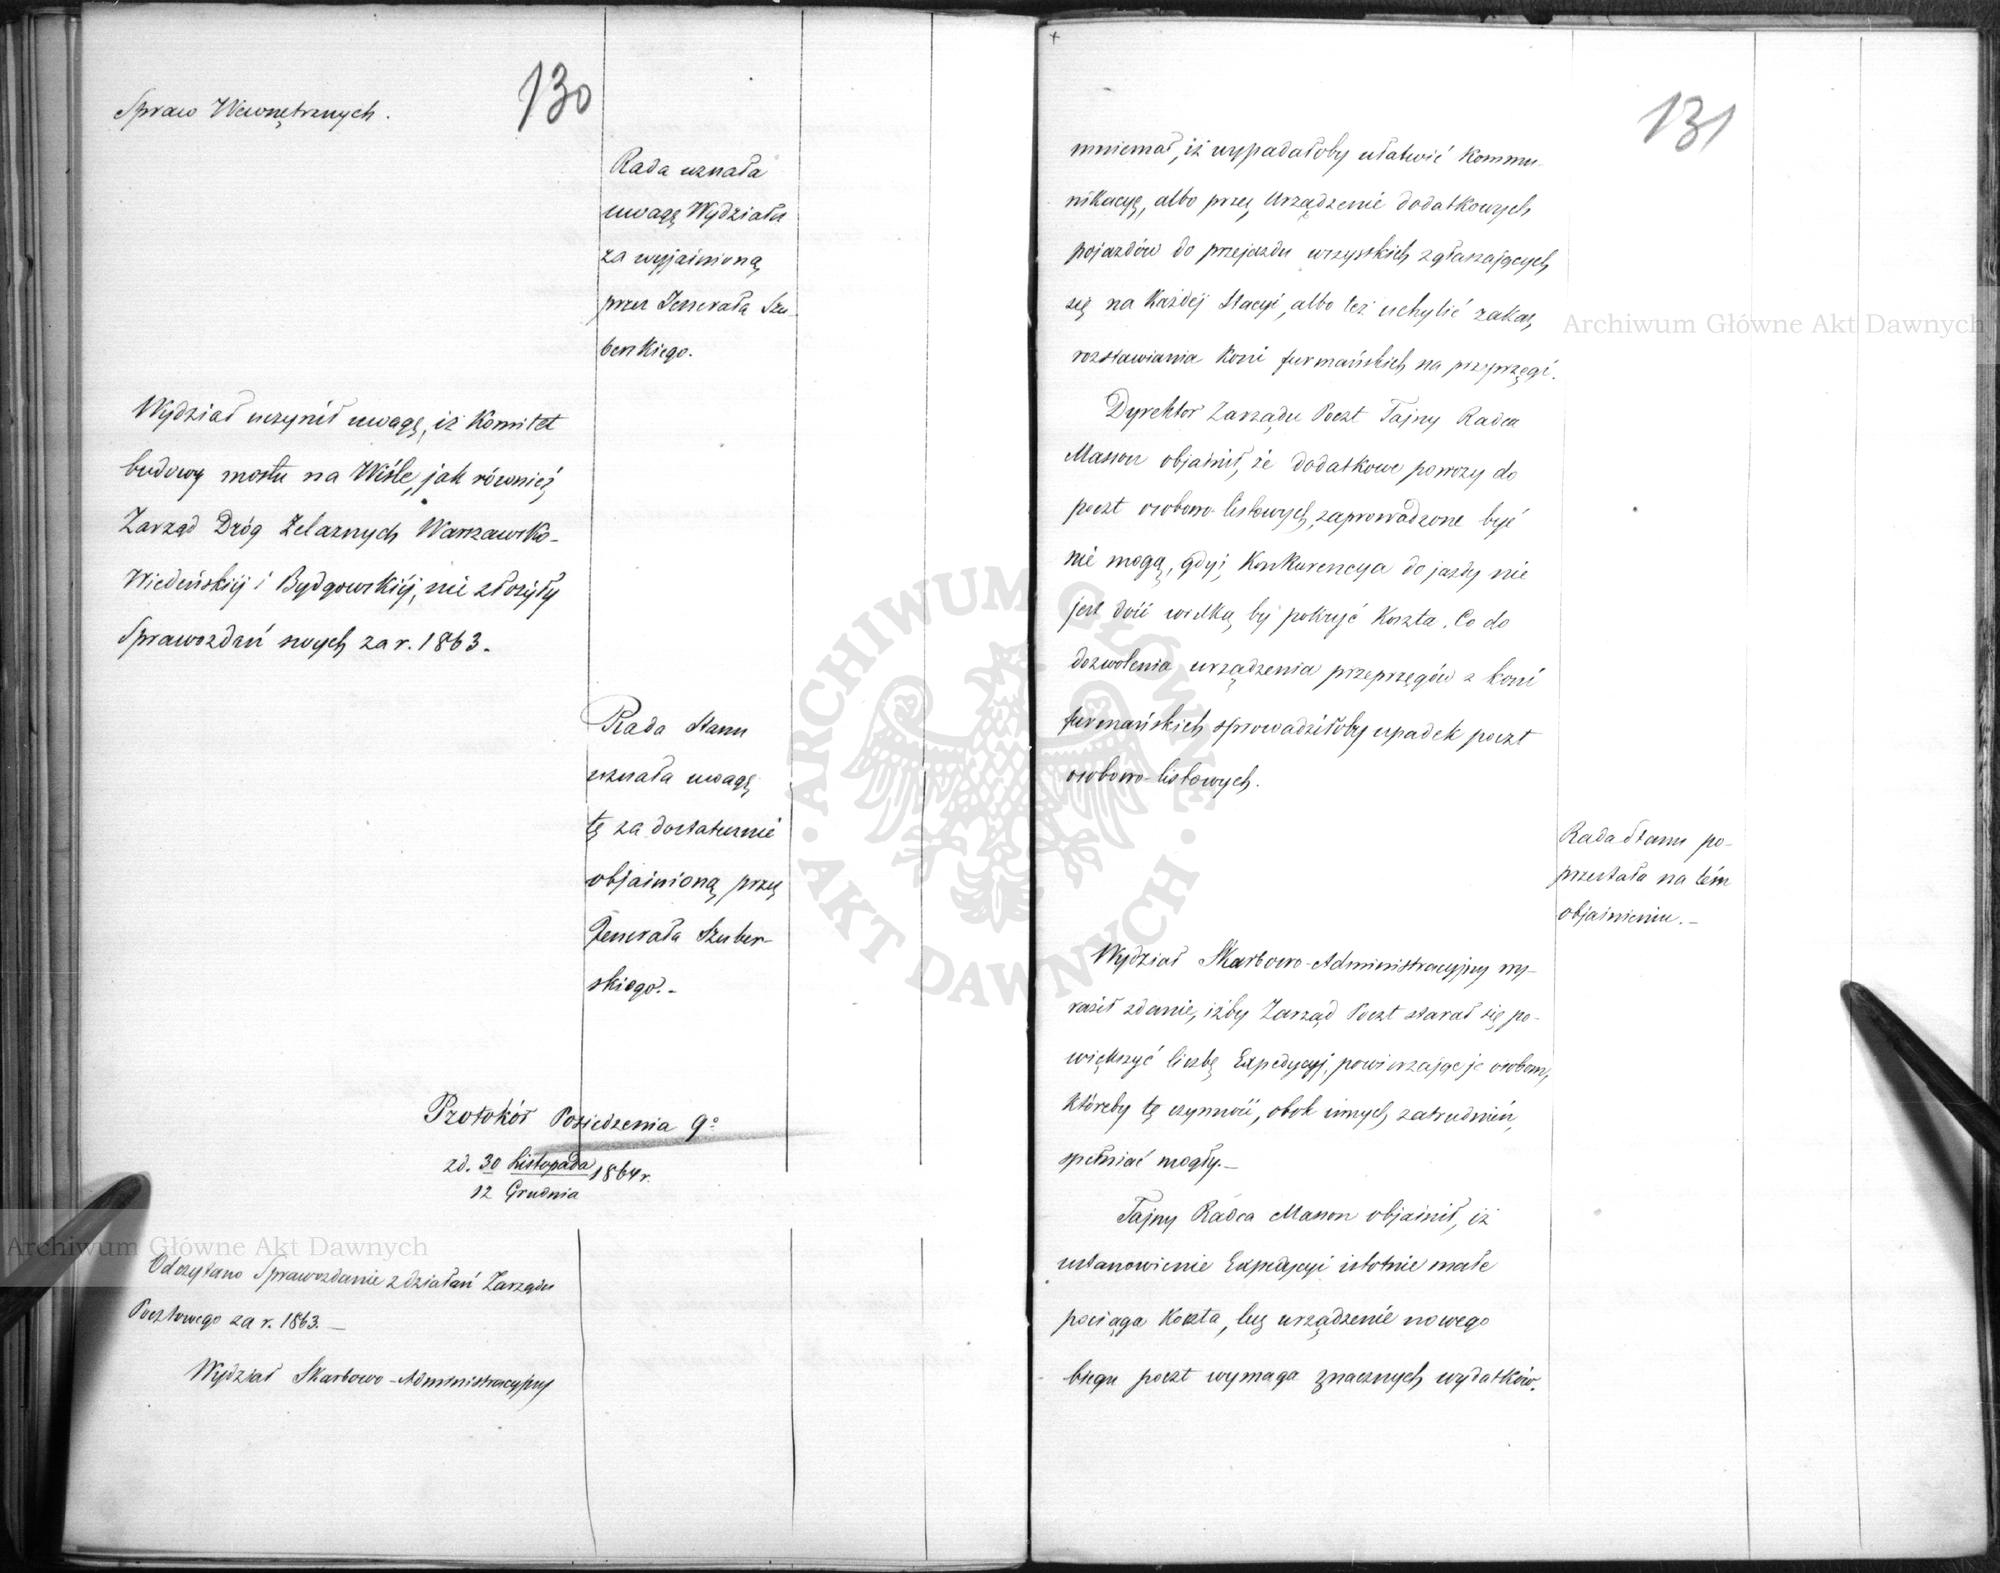 130
Spraw Wewnętrznych.
Rada uznała
uwagę Wydziału
za wyjaśnioną
przez Jenerała Szu-
berskiego.
Wydział uczynił uwagę, iż Komitet
budowy mostu na Wiśle, jak również
Zarząd Dróg Żelaznych Warszawsko-
Wiedeńskiéj i Bydgowskiéj, nie złożyły
Sprawozdań swych za r. 1863.
Rada Stanu
uznała uwagę
tę za dostatecznie
objaśnioną przez
Jenerała Szuber-
skiego.-
Protokół Posiedzenia 9º
z d. 30 Listopada 1864 r.
12 Grudnia
Odczytano Sprawozdanie z działań Zarządu
Pocztowego za r. 1863. —
Wydział Skarbowo-Administracyjny
131
mniemał, iż wypadałoby ułatwić kommu-
nikacyę, albo przez urządzenie dodatkowych
pojazdów do przejazdu wszystkich zgłaszających
się na każdéj Stacyi, albo też uchylić zakaz
rozstawiania koni furmańskich na przeprzęgi.
Dyrektor Zarządu Poczt Tajny Radca
Masson objaśnił, że dodatkowe powozy do
poczt osobowo-listowych, zaprowadzone być
nie mogą, gdyż konkurencya do jazdy nie
jest dość wielką by pokryć koszta. Co do
dozwolenia urządzenia przeprzęgów z koni
furmańskich sprowadziłoby upadek poczt
osobowo-listowych.
Rada Stanu po-
przestała na tém
objaśnieniu.—
Wydział Skarbowo-Administracyjny wy-
raził zdanie, iżby Zarząd Poczt starał się po-
większyć liczbę Expedycyj, powierzając je osobom,
któreby tę czynność, obok innych zatrudnień,
spełniać mogły.—
Tajny Radca Masson objaśnił, iż
ustanowienie Expedycyi istotnie małe
pociąga koszta, lecz urządzenie nowego
biegu poczt wymaga znacznych wydatków.
Archiwum Główne Akt Dawnych
Archiwum Główne Akt Dawnych
ARCHIWUM GŁÓWNE AKT DAWNYCH